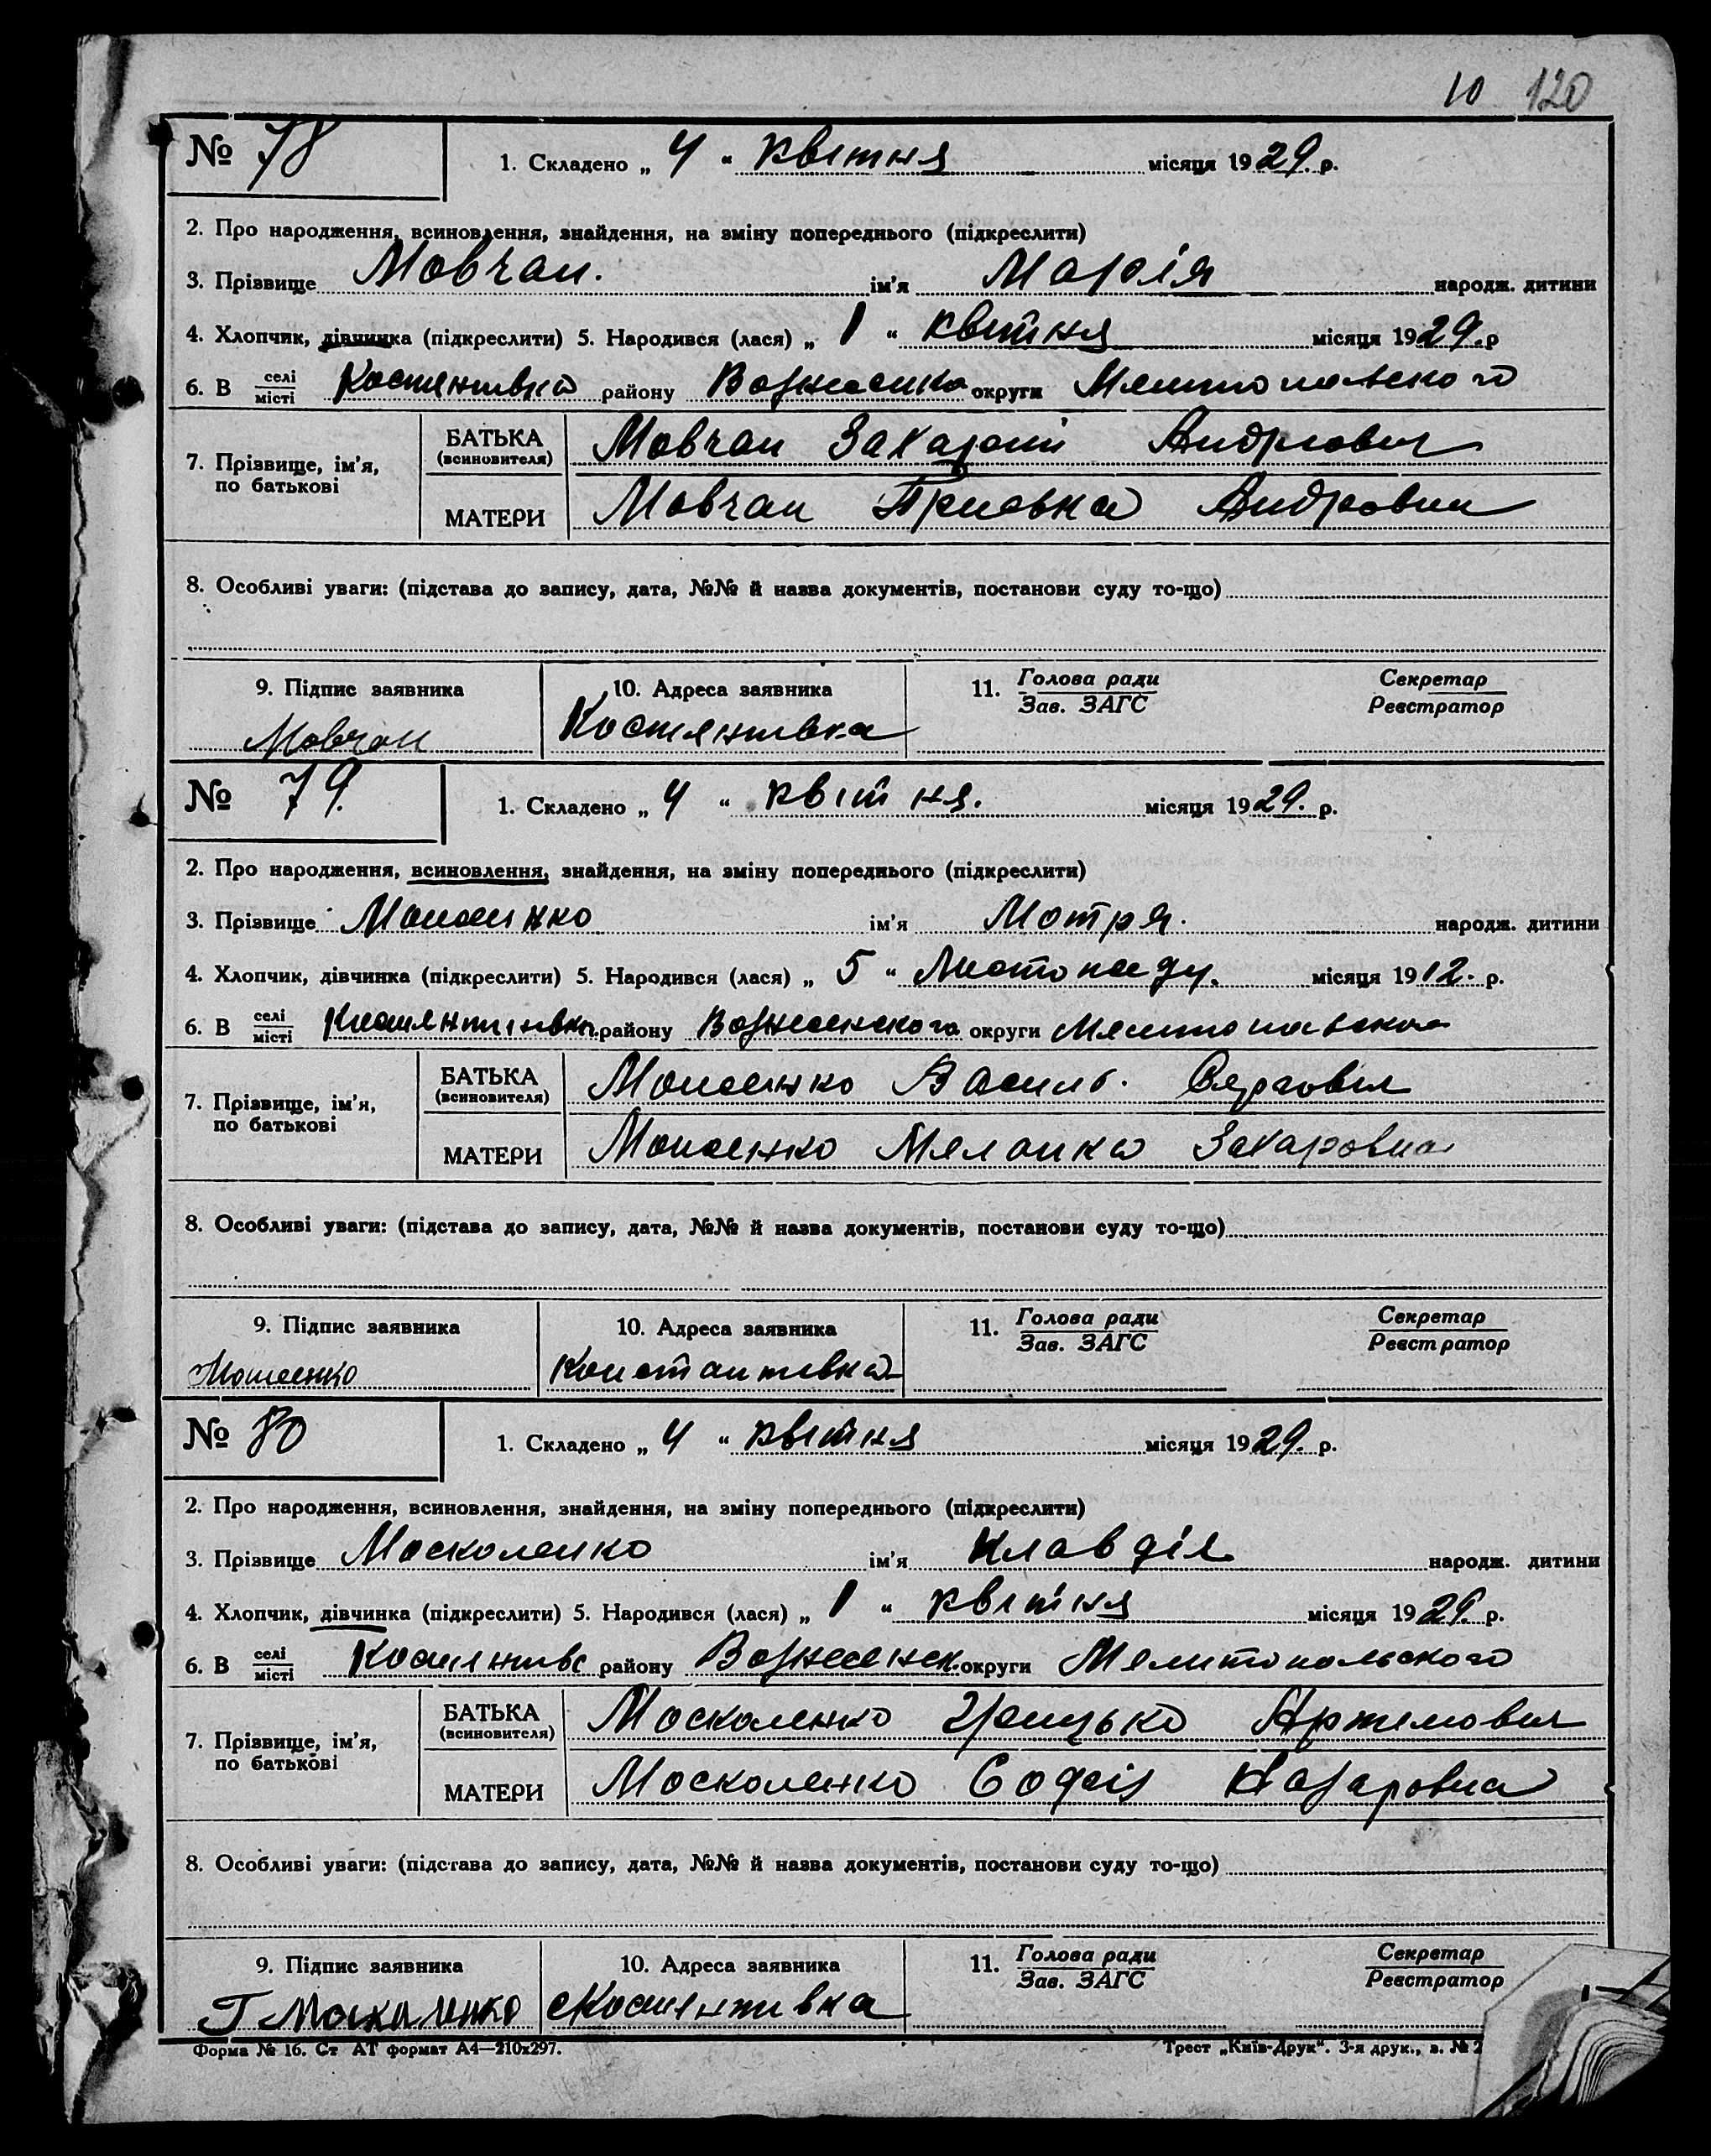 10 120
№ 78 1. Складено „ 4 “ квітня місяця 1929. р.
2. Про народження, всиновлення, знайдення, на зміну попереднього (підкреслити)
3. Прізвище Мовчан. ім'я Марія народж. дитини
4. Хлопчик, дівчинка (підкреслити) 5. Народився (лася) „ 1 “ квітня місяця 1929. р
6. В селі місті Костянтивка району округи
7. Прізвище, ім'я, по батькові БАТЬКА (всиновителя) Мовчан Захарій Андрієвич
МАТЕРИ Мовчан
8. Особливі уваги: (підстава до запису, дата, №№ й назва документів, постанови суду то-що)
9. Підпис заявника 10. Адреса заявника 11. Голова ради Секретар
Зав. ЗАГС Реєстратор
Мовчан Костянтивка
№ 79. 1. Складено „ 4 “ квітня. місяця 1929. р.
2. Про народження, всиновлення, знайдення, на зміну попереднього (підкреслити)
3. Прізвище ім'я Мотря. народж. дитини
4. Хлопчик, дівчинка (підкреслити) 5. Народився (лася) „ 5 “ Листопаду. місяця 1912. р.
6. В селі місті району округи
7. Прізвище, ім'я, по батькові БАТЬКА (всиновителя) Василь.
МАТЕРИ Меланка Захаровна
8. Особливі уваги: (підстава до запису, дата, №№ й назва документів, постанови суду то-що)
9. Підпис заявника 10. Адреса заявника 11. Голова ради Секретар
Зав. ЗАГС Реєстратор
Константивка
№ 80 1. Складено „ 4 “ квітня місяця 1929. р.
2. Про народження, всиновлення, знайдення, на зміну попереднього (підкреслити)
3. Прізвище Москаленко ім'я Клавдія народж. дитини
4. Хлопчик, дівчинка (підкреслити) 5. Народився (лася) „ 1 “ квітня місяця 1929. р.
6. В селі місті району округи Мелитопольского
7. Прізвище, ім'я, по батькові БАТЬКА (всиновителя) Москаленко Грицько Артемович
МАТЕРИ Москаленко Софія Назаровна
8. Особливі уваги: (підстава до запису, дата, №№ й назва документів, постанови суду то-що)
9. Підпис заявника 10. Адреса заявника 11. Голова ради Секретар
Зав. ЗАГС Реєстратор
Г Москаленко Костянтивка
Форма № 16. Ст АТ формат А4—210х297. Трест „Київ-Друк“. 3-я друк., з. № 2